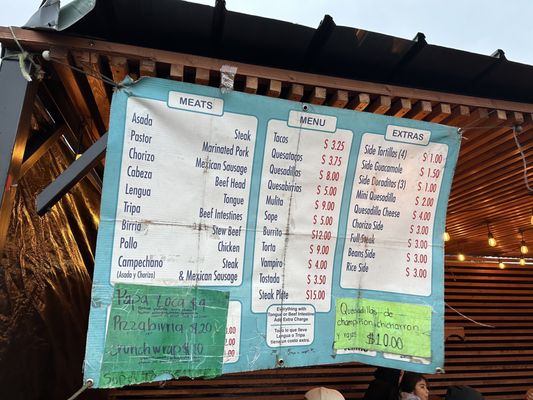 MEATS
Asada Steak
Pastor Marinated Pork
Chorizo Mexican Sausage
Cabeza Beef Head
Lengua Tongue
Tripa Beef Intestines
Birria Stew Beef
Pollo Chicken
Campechano Steak
(Asada y Chorizo) & Mexican Sausage
Papa Loca $4
Pizzabirria $20
crunchwraps $10
MENU
Tacos $ 3.25
Quesatacos $ 3.75
Quesadillas $ 8.00
Quesabirrias $ 5.00
Mulita $ 9.00
Sope $ 5.00
Burrito $12.00
Torta $ 9.00
Vampiro $ 4.00
Tostada $ 3.50
Steak Plate $15.00
Everything with
Tongue or Beef Intestine
Add Extra Charge
Todo lo que lleve
Lengua o Tripa
EXTRAS
Side Tortillas (4) $ 1.00
Side Guacamole $ 1.50
Side Duraditas (3) $ 1.00
Mini Quesadilla $ 2.00
Quesadilla Cheese $ 4.00
Chorizo Side $ 3.00
Full Steak $ 3.00
Beans Side $ 3.00
Rice Side $ 3.00
Quesadillas de
champiñon, chicharron
y rajas
$10.00